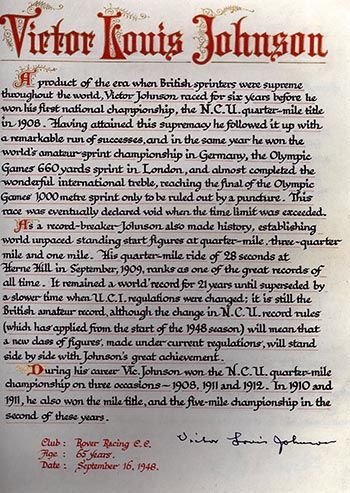 Victor Louis Johnson
A product of the era when British sprinters were supreme
throughout the world, Victor Johnson raced for six years before he
won his first national championship, the N.C.U. quarter-mile title
in 1908. Having attained this supremacy he followed it up with
a remarkable run of successes, and in the same year he won the
world's amateur-sprint championship in Germany, the Olympic
Games 660 yards sprint in London, and almost completed the
wonderful international treble, reaching the final of the Olympic
Games 1,000 metre sprint only to be ruled out by a puncture. This
race was eventually declared void when the time limit was exceeded.
As a record-breaker Johnson also made history, establishing
world unpaced standing start figures at quarter-mile, three-quarter
mile and one mile. His quarter-mile ride of 28 seconds at
Herne Hill in September, 1909, ranks as one of the great records of
all time. It remained a world record for 21 years until superseded by
a slower time when U.C.I. regulations were changed; it is still the
British amateur record, although the change in N.C.U. record rules
(which has applied from the start of the 1948 season) will mean that
a new class of figures, made under current regulations, will stand
side by side with Johnson's great achievement.
During his career Vic. Johnson won the N.C.U. quarter-mile
championship on three occasions – 1908, 1911 and 1912. In 1910 and
1911, he also won the mile title, and the five-mile championship in the
second of these years.
Victor Louis Johnson
Club : Rover Racing C.C.
Age : 65 years.
Date : September 16, 1948.